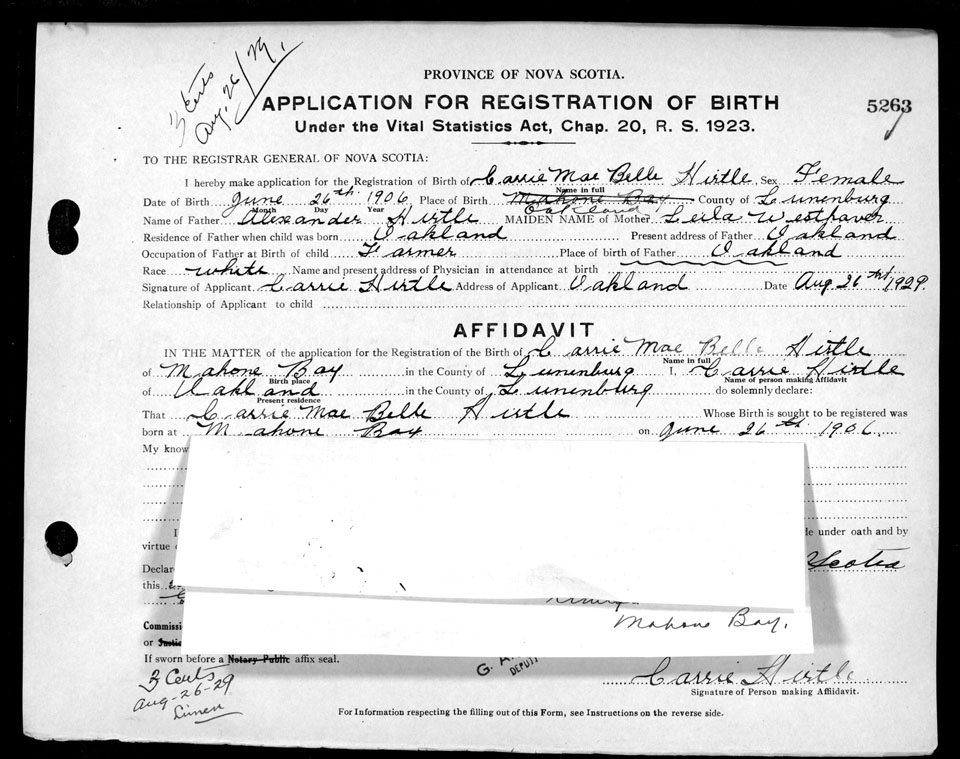 3 Certs
Aug. 26/29.
PROVINCE OF NOVA SCOTIA.
APPLICATION FOR REGISTRATION OF BIRTH
5263
Under the Vital Statistics Act, Chap. 20, R. S. 1923.
TO THE REGISTRAR GENERAL OF NOVA SCOTIA:
I hereby make application for the Registration of Birth of Carrie Mae Belle Hirtle Sex Female
Name in full
Date of Birth June 26th 1906 Place of Birth Mahone Bay County of Lunenburg
Month Day Year Oakland
Name of Father Alexander Hirtle MAIDEN NAME of Mother Leila Westhaver
Residence of Father when child was born Oakland Present address of Father Oakland
Occupation of Father at Birth of child Farmer Place of birth of Father Oakland
Race White Name and present address of Physician in attendance at birth
Signature of Applicant Carrie Hirtle Address of Applicant Oakland Date Aug. 26th, 1929.
Relationship of Applicant to child
AFFIDAVIT
IN THE MATTER of the application for the Registration of the Birth of Carrie Mae Belle Hirtle
Name in full
of Mahone Bay in the County of Lunenburg I, Carrie Hirtle
Birth place Name of person making Affidavit
of Oakland in the County of Lunenburg do solemnly declare:
Present residence
That Carrie Mae Belle Hirtle Whose Birth is sought to be registered was
born at Mahone Bay on June 26th 1906.
My know
I e under oath and by
virtue
Declar Scotia
this
Mahone Bay.
Commissi
or Justic
If sworn before a Notary Public affix seal.
G. A.
DEPUT
3 Certs
Aug-26-29
Lunen
Carrie Hirtle
Signature of Person making Affidavit.
For Information respecting the filling out of this Form, see Instructions on the reverse side.